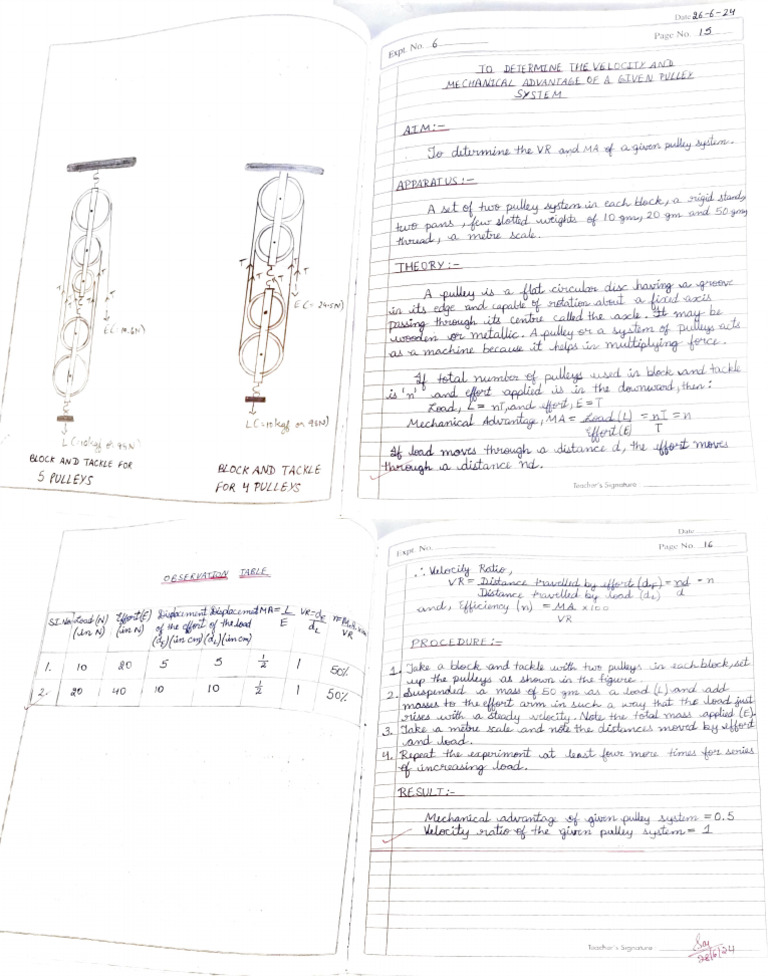 Date 26-6-24
Expt. No. 6
Page No. 15
TO DETERMINE THE VELOCITY AND
MECHANICAL ADVANTAGE OF A GIVEN PULLEY
SYSTEM
AIM:-
To determine the VR and MA of a given pulley system.
APPARATUS:-
A set of two pulley system in each block, a rigid stand,
two pans, few slotted weights of 10 gm, 20 gm and 50 gm,
thread, a metre scale.
THEORY:-
A pulley is a flat circular disc having a groove
in its edge and capable of rotation about a fixed axis
passing through its centre called the axle. It may be
wooden or metallic. A pulley or a system of pulleys acts
as a machine because it helps in multiplying force.
If total number of pulleys used in block and tackle
is 'n' and effort applied is in the downward, then:
Load, L = nT, and effort, E = T
Mechanical Advantage, MA = Load (L) = nT = n
Effort (E) T
If load moves through a distance d, the effort moves
through a distance nd.
Teacher's Signature
T T T T
E(= 24.5N)
L(=10kgf or 98N)
BLOCK AND TACKLE FOR
5 PULLEYS
BLOCK AND TACKLE
FOR 4 PULLEYS
OBSERVATION TABLE
Sl.No Load (N) Effort (E) Displacement Displacement MA= L VR= dE
(in N) (in N) of the effort of the load E dL
(dE) (in cm) (dL) (in cm) VR
1. 10 20 5 5 1/2 1 50%
2. 20 40 10 10 1/2 1 50%
Date
Expt. No.
Page No. 16
∴ Velocity Ratio,
VR = Distance travelled by effort (dE) = nd = n
Distance travelled by load (dL) d
and, Efficiency (n) = MA x100
VR
PROCEDURE:-
1. Take a block and tackle with two pulleys in each block, set
up the pulleys as shown in the figure.
2. Suspended a mass of 50 gm as a load (L) and add
masses to the effort arm in such a way that the load just
rises with a steady velocity. Note the total mass applied (E).
3. Take a metre scale and note the distances moved by effort
and load.
4. Repeat the experiment at least four more times for series
of increasing load.
RESULT:-
Mechanical advantage of given pulley system = 0.5
Velocity ratio of the given pulley system = 1
Teacher's Signature
28/6/24